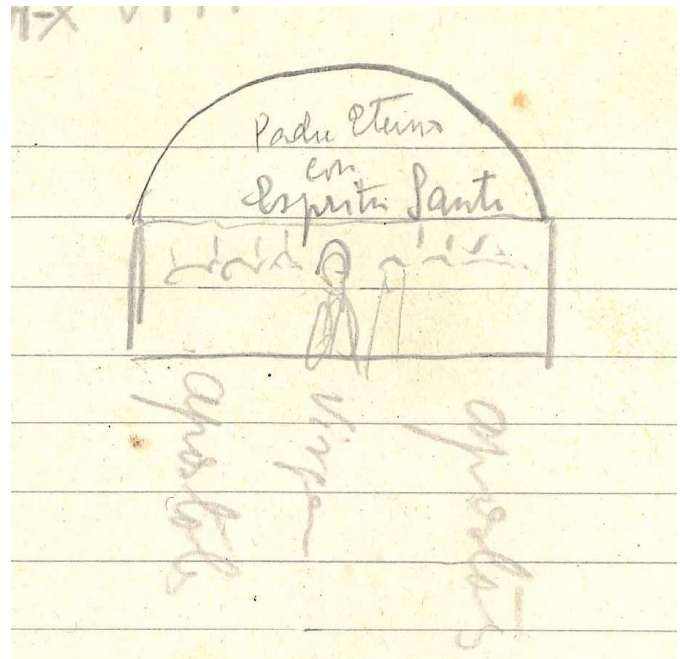 Padre Eterno
con
Espiritu Santo
apostoles
Virgen
apostoles